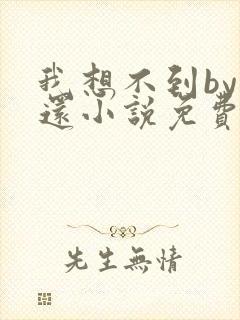 我想不到by
還小說免費
先生無情